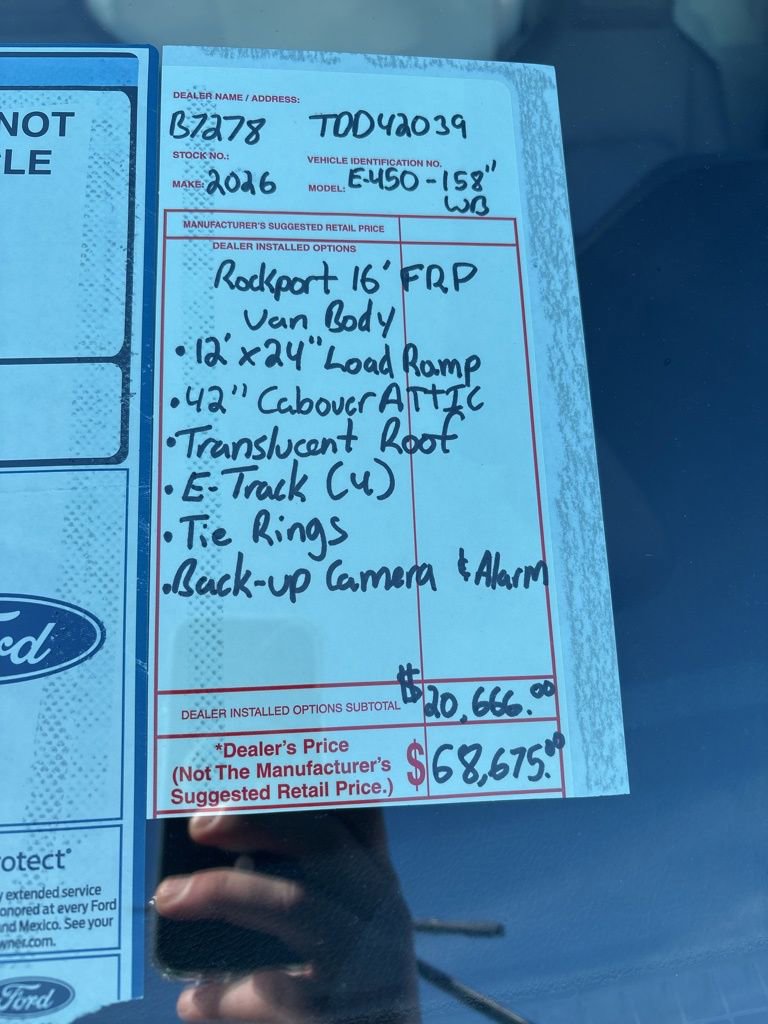 NOT
LE
DEALER NAME / ADDRESS:
B7278 TDD42039
STOCK NO.: VEHICLE IDENTIFICATION NO.
MAKE: 2026 MODEL: E-450-158"
WB
MANUFACTURER'S SUGGESTED RETAIL PRICE
DEALER INSTALLED OPTIONS
Rockport 16' FRP
Van Body
• 12' x 24" Load Ramp
• 42" Cabover ATTIC
• Translucent Roof
• E-Track (4)
• Tie Rings
• Back-up Camera & Alarm
DEALER INSTALLED OPTIONS SUBTOTAL $20,666.00
*Dealer's Price
(Not The Manufacturer's
Suggested Retail Price.) $68,675.00
rd
otect
extended service
onored at every Ford
nd Mexico. See your
wner.com.
Ford